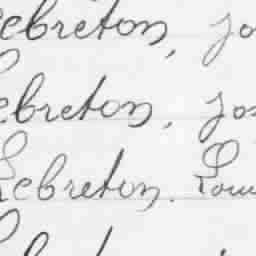 Lebreton, Jo
Lebreton, Jos
Lebreton. Loui